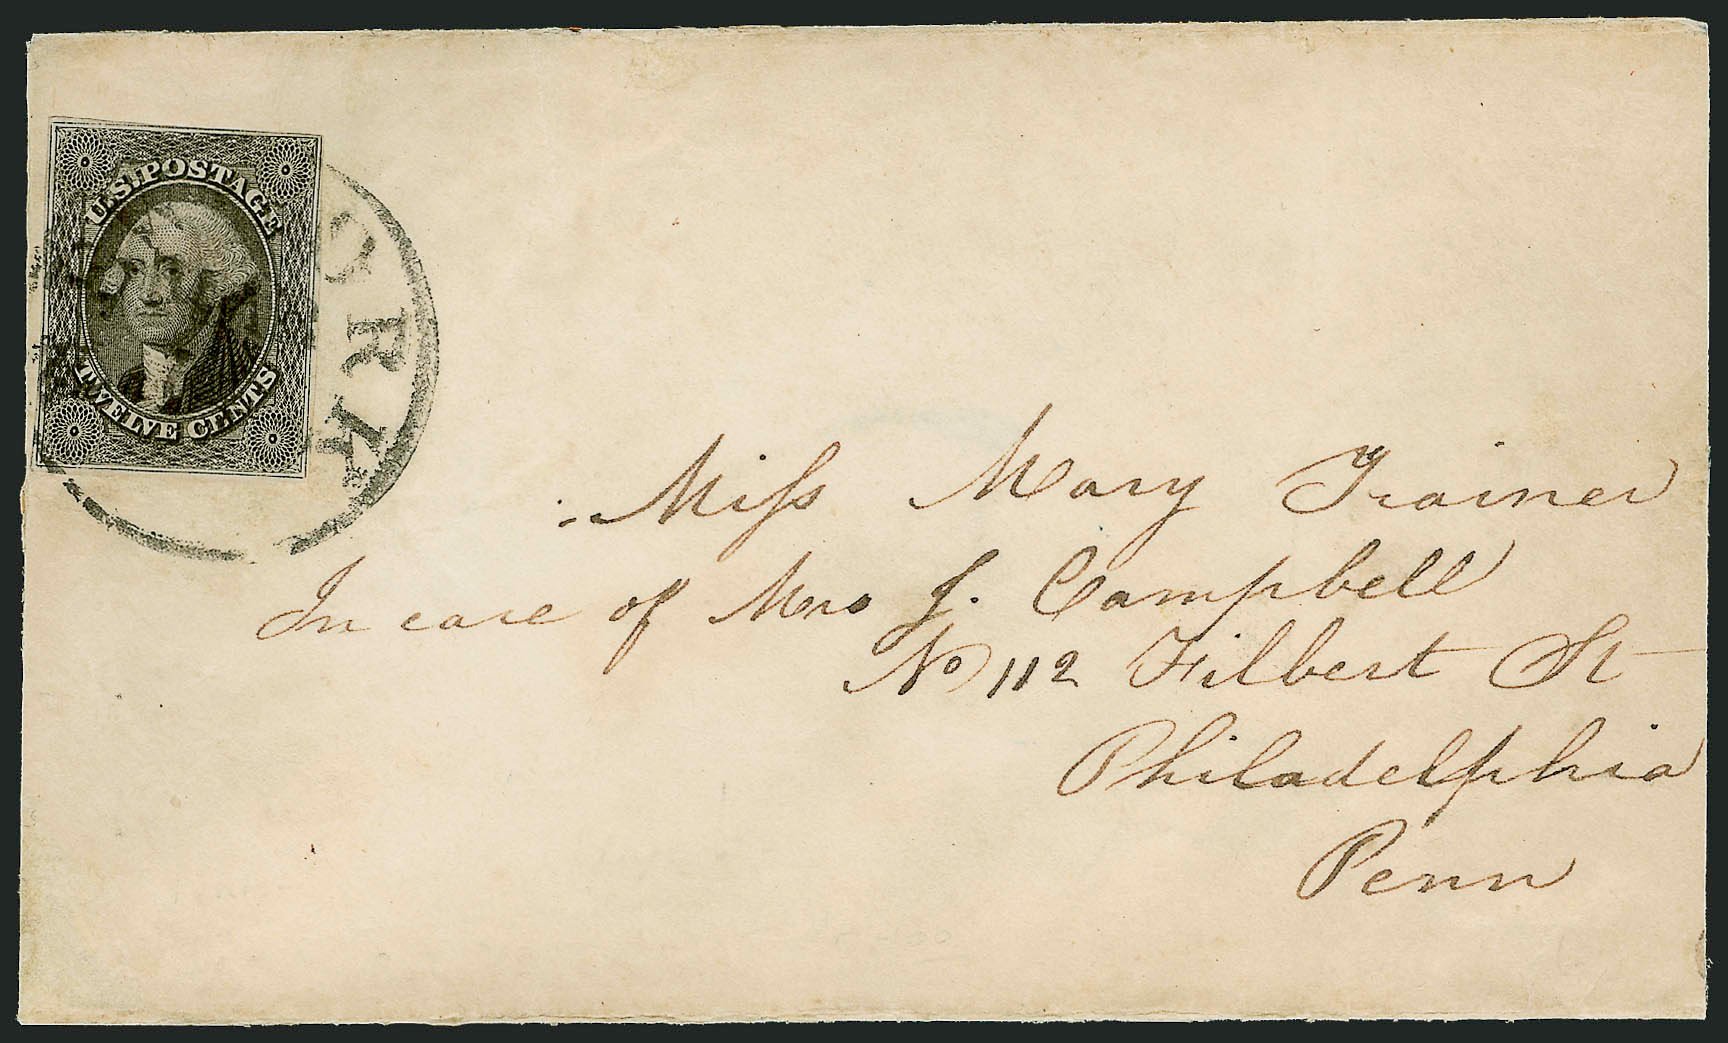 U.S. POSTAGE
TWELVE CENTS
ORK
Miss Mary Trainer
In care of Mrs J. Campbell
No 112 Filbert St
Philadelphia
Penn